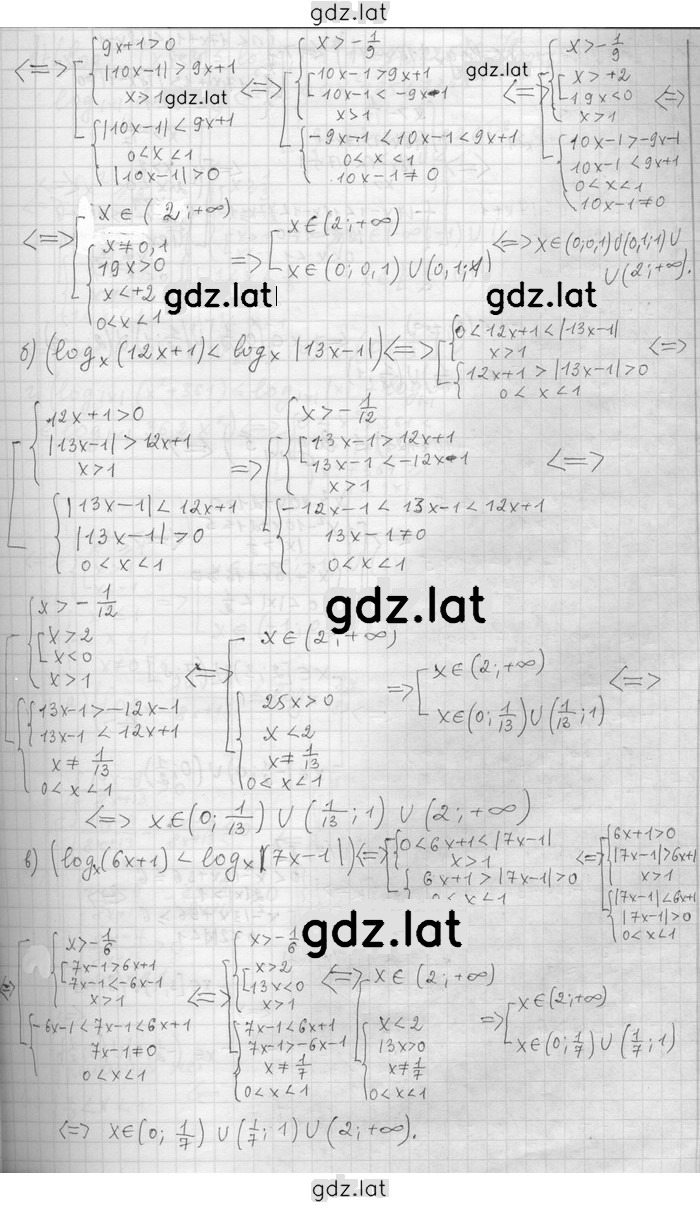 gdz.lat
<=> [ { 9x+1>0 ; |10x-1|>9x+1 ; x>1 ; { |10x-1|<9x+1 ; 0<x<1 ; |10x-1|>0 <=> [ { x>-1/9 ; [ 10x-1>9x+1 ; 10x-1<-9x-1 ; x>1 ; { -9x-1<10x-1<9x+1 ; 0<x<1 ; 10x-1≠0 <=> [ { x>-1/9 ; [ x>+2 ; 19x<0 ; x>1 ; { 10x-1>-9x-1 ; 10x-1<9x+1 ; 0<x<1 ; 10x-1≠0 <=>
gdz.lat gdz.lat
<=> [ x∈(2;+∞) ; { x≠0,1 ; 19x>0 ; x<+2 ; 0<x<1 => [ x∈(2;+∞) ; x∈(0;0,1)∪(0,1;1) <=> x∈(0;0,1)∪(0,1;1)∪
∪(2;+∞).
gdz.lat gdz.lat
б) (log_x(12x+1)<log_x|13x-1|) <=> [ { 0<12x+1<|13x-1| ; x>1 ; { 12x+1>|13x-1|>0 ; 0<x<1 <=>
[ { 12x+1>0 ; |13x-1|>12x+1 ; x>1 ; { |13x-1|<12x+1 ; |13x-1|>0 ; 0<x<1 => [ { x>-1/12 ; [ 13x-1>12x+1 ; 13x-1<-12x-1 ; x>1 ; { -12x-1<13x-1<12x+1 ; 13x-1≠0 ; 0<x<1 <=>
gdz.lat
[ { x>-1/12 ; [ x>2 ; x<0 ; x>1 ; { 13x-1>-12x-1 ; 13x-1<12x+1 ; x≠1/13 ; 0<x<1 <=> [ x∈(2;+∞) ; { 25x>0 ; x<2 ; x≠1/13 ; 0<x<1 => [ x∈(2;+∞) ; x∈(0;1/13)∪(1/13;1) <=>
<=> x∈(0;1/13)∪(1/13;1)∪(2;+∞)
в) (log_x(6x+1)<log_x|7x-1|) <=> [ { 0<6x+1<|7x-1| ; x>1 ; { 6x+1>|7x-1|>0 ; 0<x<1 <=> [ { 6x+1>0 ; |7x-1|>6x+1 ; x>1 ; { |7x-1|<6x+1 ; |7x-1|>0 ; 0<x<1
gdz.lat
<=> [ { x>-1/6 ; [ 7x-1>6x+1 ; 7x-1<-6x-1 ; x>1 ; { -6x-1<7x-1<6x+1 ; 7x-1≠0 ; 0<x<1 <=> [ { x>-1/6 ; [ x>2 ; 13x<0 ; x>1 ; { 7x-1<6x+1 ; 7x-1>-6x-1 ; x≠1/7 ; 0<x<1 <=> [ x∈(2;+∞) ; { x<2 ; 13x>0 ; x≠1/7 ; 0<x<1 => [ x∈(2;+∞) ; x∈(0;1/7)∪(1/7;1)
<=> x∈(0;1/7)∪(1/7;1)∪(2;+∞).
gdz.lat